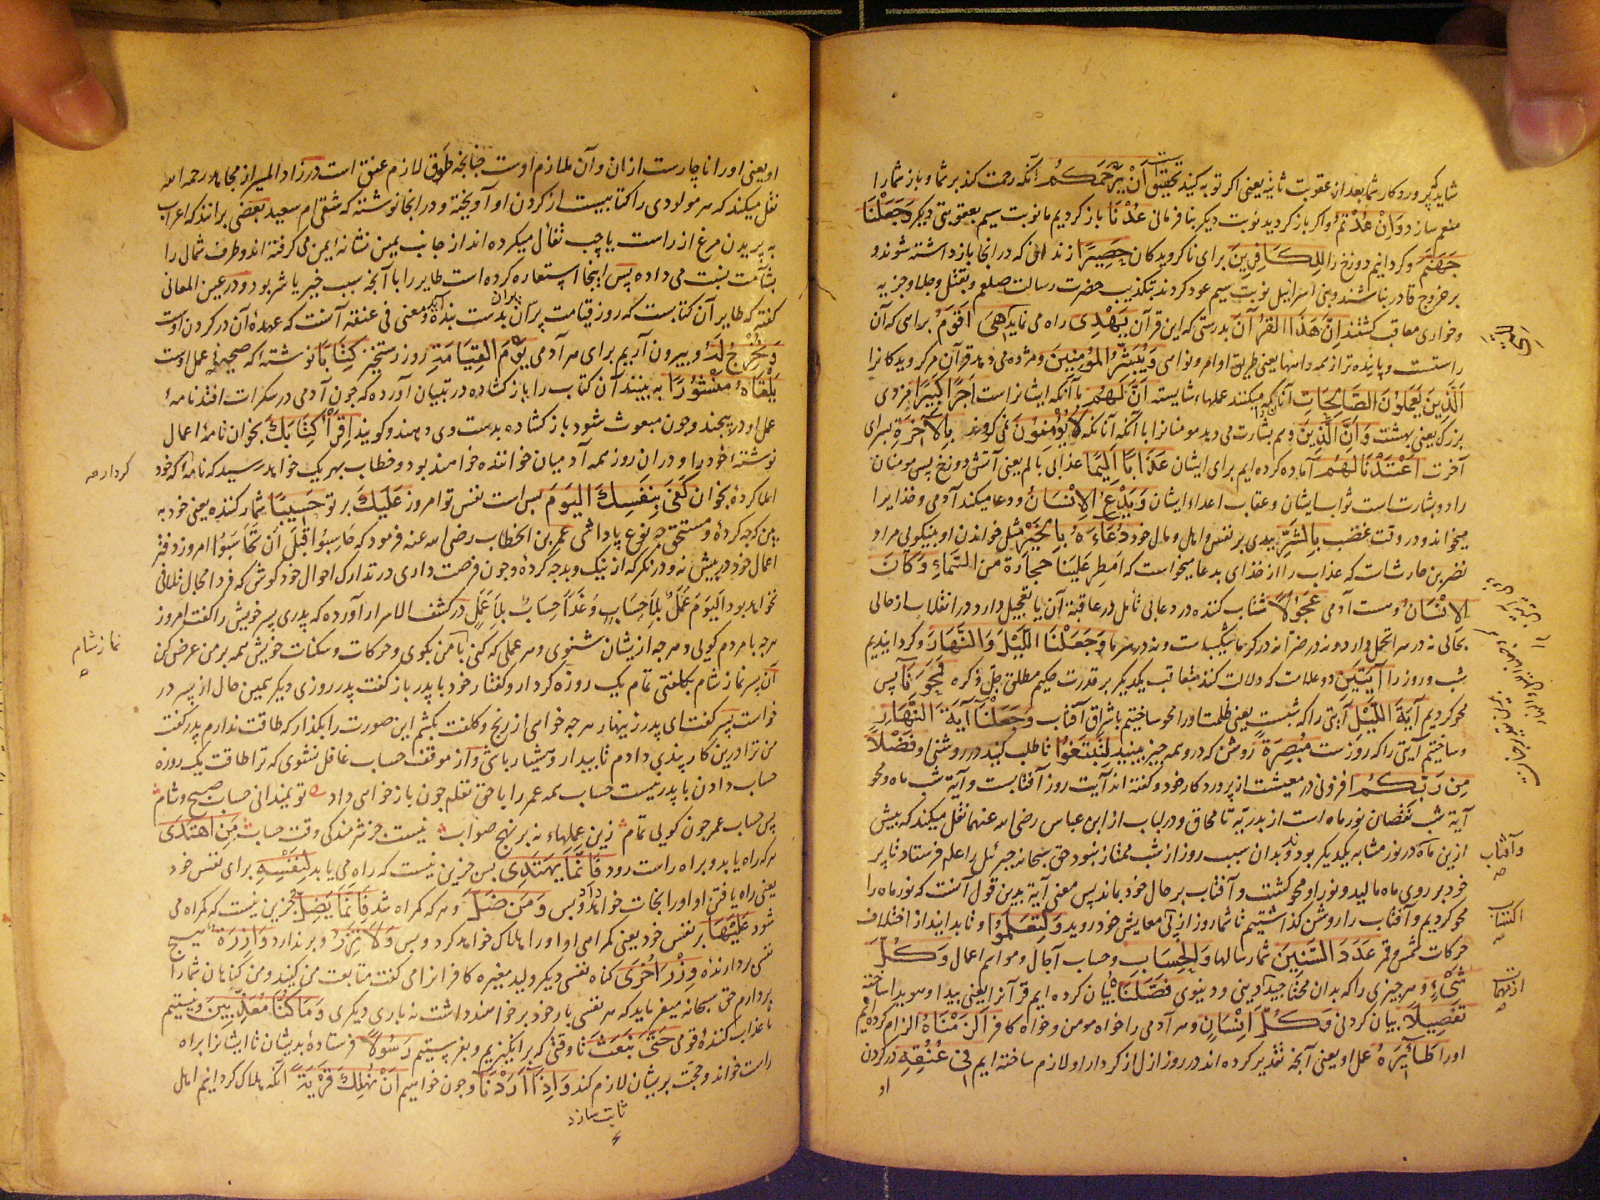 شاید که پروردگار شما بعد از عقوبت ثانیه یعنی اگر توبه کنید تحقیق أَنْ يَرْحَمَكُمْ آنکه رحمت کند بر شما و باز شما را
منعم سازد وَإِنْ عُدْتُمْ و اگر باز گردید نوبت دیگر بنافرمانی عُدْنَا باز گردیم ما نوبت سیم بعقوبتی دیگر وَجَعَلْنَا
جَهَنَّمَ و گردانیم دوزخ را لِلْكَافِرِينَ برای ناگرویدگان حَصِيرًا زندانی که در انجا بازداشته شوند و
بر خروج قادر نباشند و بنی اسرائیل نوبت سیم عود کردند بتکذیب حضرت رسالت صلعم و بقتل و جلا و جزیه
و خواری معاقب گشتند إِنَّ هَذَا الْقُرْآنَ بدرستی که این قرآن يَهْدِي راه می نماید لِلَّتِي هِيَ أَقْوَمُ براهی که آن
راستست و پاینده تر از همه راهها یعنی طریق اوامر و نواهی وَيُبَشِّرُ الْمُؤْمِنِينَ و مژده می دهد قرآن مر گرویدگانرا
الَّذِينَ يَعْمَلُونَ الصَّالِحَاتِ آنانکه میکنند عملهاء شایسته أَنَّ لَهُمْ با آنکه ایشانراست أَجْرًا كَبِيرًا مزدی
بزرگ یعنی بهشت وَأَنَّ الَّذِينَ و هم بشارت می دهد مومنانرا با آنکه آنانکه لَا يُؤْمِنُونَ نمی گروند بِالْآخِرَةِ بسرای
آخرت أَعْتَدْنَا لَهُمْ آماده کرده ایم برای ایشان عَذَابًا أَلِيمًا عذابی بالم یعنی آتش دوزخ پس مومنان
را دو بشارتست ثواب ایشان و عقاب اعداء ایشان وَيَدْعُ الْإِنْسَانُ و دعا میکند آدمی و خدایرا
میخواند در وقت غضب بِالشَّرِّ ببدی بر نفس و اهل و مال خود دُعَاءَهُ بِالْخَيْرِ مثل خواندن او بنیکویی مراد
نضر بن حارثست که عذاب را از خدای بدعا میخواست که أمطر علینا حجارة من السماء وَكَانَ
الْإِنْسَانُ و هست آدمی عَجُولًا شتاب کننده در دعا بی تأمل در عاقبة آن یا تعجیل دارد در انقلاب از حالی
بحالی نه در سرا تحمل دارد و نه در ضرا نه در گرما شکیباست و نه در سرما وَجَعَلْنَا اللَّيْلَ وَالنَّهَارَ و گردانیدیم
شب و روز را آيَتَيْنِ دو علامت که دلالت کنند بتعاقب یکدیگر بر قدرت حکیم مطلق جل ذکره فَمَحَوْنَا پس
محو کردیم آيَةَ اللَّيْلِ آیتی را که شبست یعنی ظلمت او را محو ساختیم باشراق آفتاب وَجَعَلْنَا آيَةَ النَّهَارِ
و ساختیم آیتی را که روزست مُبْصِرَةً روشن که در و همه چیز بینید لِتَبْتَغُوا تا طلب کنید در روشنی او فَضْلًا
مِنْ رَبِّكُمْ افزونی در معیشت از پروردگار خود و گفته اند آیت روز آفتابست و آیة شب ماه و محو
آیة شب نقصان نور ماه است از بدریة تا محاق و در لباب از ابن عباس رضی الله عنهما نقل میکند که پیش
ازین ماه در نور مشابه یکدیگر بود و بدان سبب روز از شب ممتاز نبود حق سبحانه جبرئیل را علم فرستاد تا پر
خود بر روی ماه مالید و نور او محو گشت و آفتاب بر حال خود بماند پس معنی آیة بدین قول آنست که نور ماه را
محو کردیم و آفتاب را روشن گذاشتیم تا شما روز از پی معایش خود روید وَلِتَعْلَمُوا و تا بدانید از اختلاف
حرکات شمس و قمر عَدَدَ السِّنِينَ شمار سالها وَالْحِسَابَ و حساب آجال و مواسم اعمال وَكُلَّ
شَيْءٍ و هر چیزی را که بدان محتاجید از دینی و دنیوی فَصَّلْنَاهُ بیان کرده ایم در قرآن آنرا یعنی پیدا و هویدا ساخته
تَفْصِيلًا بیان کردنی وَكُلَّ إِنْسَانٍ و هر آدمی را خواه مومن و خواه کافر أَلْزَمْنَاهُ الزام کرده ایم
او را طَائِرَهُ عمل او یعنی آنچه تقدیر کرده اند در روز ازل از کردار او لازم ساخته ایم فِي عُنُقِهِ در گردن
او
وآفتاب
او یعنی او را ناچارست از ان و آن ملازم اوست چنانچه طوق لازم عنق است در زاد المسیر از مجاهد رحمه الله
نقل میکند که هر مولودی را کتابیست از گردن او آویخته و در انجا نوشته که شقی ام سعید بعضی برانند که اعراب
به پریدن مرغ از راست یا چپ تفأل میکرده اند از جانب یمین نشانه ایمن می گرفته اند و طرف شمالی را
بشآمت نسبت می داده پس اینجا استعاره کرده است طایر را با آنچه سبب خیر یا شر بود و در عین المعانی
گفته که طایر آن کتابست که روز قیامت پران بدست بنده آید و معنی فی عنقه آنست که عهده آن در گردن اوست
وَنُخْرِجُ لَهُ و بیرون آریم برای هر آدمی يَوْمَ الْقِيَامَةِ روز رستخیز كِتَابًا نوشته که صحیفهء عمل اوست
يَلْقَاهُ مَنْشُورًا به بیند آن کتاب را باز کشاده در تبیان آورده که چون آدمی در سکرات افتد نامهٔ
عمل او در پیچند و چون مبعوث شود باز کشاده بدست وی دهند و گویند اقْرَأْ كِتَابَكَ بخوان نامهٔ اعمال
نوشتهٔ خود را و دران روز همه آدمیان خواننده خواهند بود و خطاب بهر یک خواهد رسید که نامهٔ که خود
املا کردهٔ بخوان كَفَى بِنَفْسِكَ الْيَوْمَ بس است نفس تو امروز عَلَيْكَ بر تو حَسِيبًا شمار کننده یعنی خود به
بین که چه کردهٔ و مستحق چه نوع پاداشی عمر بن الخطاب رضی الله عنه فرمود که حاسبوا قبل أن تحاسبوا امروز دفتر
اعمال خود در پیش نه و در نگر که از نیک و بد چه کردهٔ و چون فرصت داری در تدارک احوال خود کوش که فردا مجال تلافی
نخواهد بود الیوم عمل بلا حساب و غدا حساب بلا عمل در کشف الاسرار آورده که پدری پسر خویش را گفت امروز
هر چه با مردم گویی و هر چه از یشان شنوی و هر عملی که کنی با من بگوی و حرکات و سکنات خویش همه بر من عرض کن
آن پسر نماز شام بکلفتی تمام یک روزه کردار و گفتار خود با پدر باز گفت پدر روزی دیگر همین حال از پسر در
خواست پسر گفت ای پدر زینهار هر چه خواهی از رنج و کلفت بکشم این صورت را بگذار که طاقت ندارم پدر گفت
من ترا درین کار پندی دادم تا بیدار و هشیار باشی و از موقف حساب غافل نشوی که ترا طاقت یک روزه
حساب دادن با پدر نیست حساب همه عمر را با حق تعالی چون باز خواهی داد تو نمیدانی حساب صبح و شام
پس حساب عمر چون گویی تمام زین عملهاء نه بر نهج صواب نیست جز شرمندگی وقت حساب مَنِ اهْتَدَى
هر که راه یابد و براه راست رود فَإِنَّمَا يَهْتَدِي پس جزین نیست که راه می یابد لِنَفْسِهِ برای نفس خود
یعنی راه یافتن او او را نجات خواهد داد و بس وَمَنْ ضَلَّ و هر که گمراه شد فَإِنَّمَا يَضِلُّ جزین نیست که گمراه می
شود عَلَيْهَا بر نفس خود یعنی گمراهی او او را هلاک خواهد کرد و بس وَلَا تَزِرُ و بر ندارد وَازِرَةٌ هیچ
نفسی بردارنده وِزْرَ أُخْرَى گناه نفسی دیگر ولید مغیره کافرانرا می گفت متابعت من کنید و من گناهان شما را
بردارم حق سبحانه میفرماید که هر نفسی بار خود بر خواهند داشت نه باری دیگری وَمَا كُنَّا مُعَذِّبِينَ و نیستیم
ما عذاب کنندهٔ قومی حَتَّى نَبْعَثَ تا وقتی که بر انگیزیم و بفرستیم رَسُولًا فرستادهٔ بدیشان تا ایشانرا براه
راست خواند و حجت بریشان لازم کند وَإِذَا أَرَدْنَا و چون خواهیم أَنْ نُهْلِكَ قَرْيَةً آنکه هلاک گردانیم اهل
ثابت سازد
کردار
نماز شام